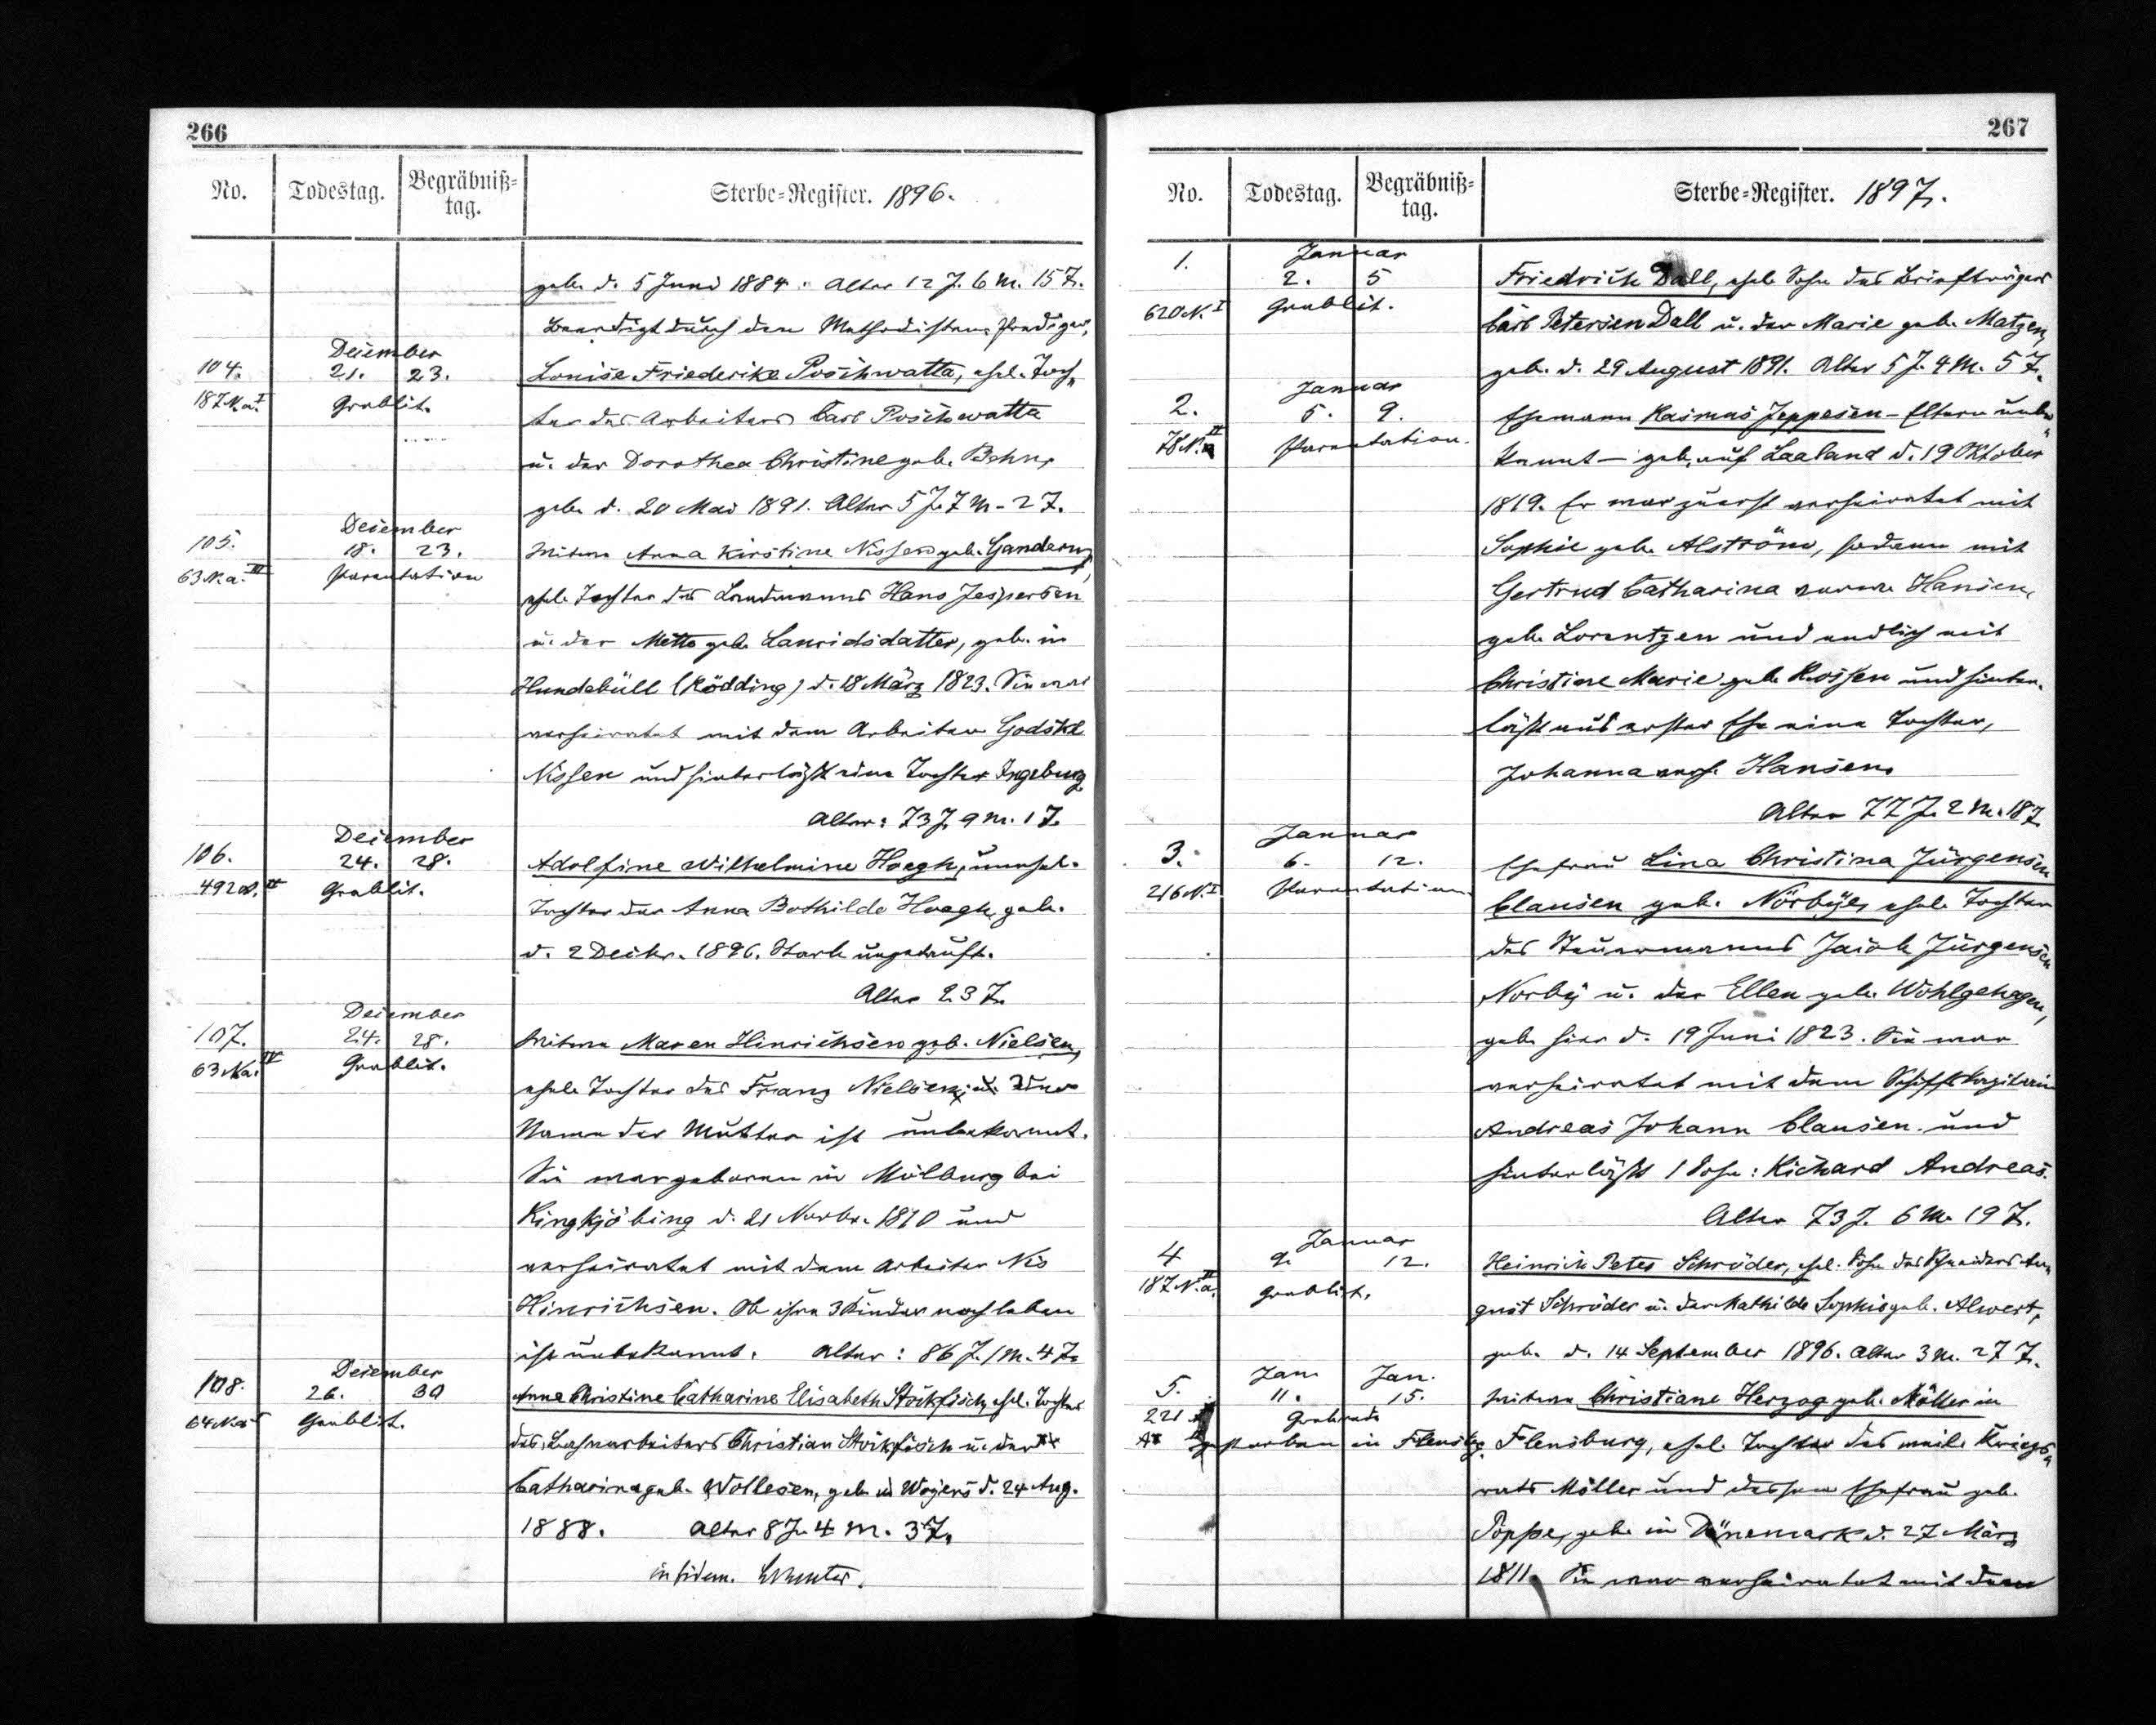 266
No. Todestag. Begräbniß-
tag. Sterbe-Register. 1896.
geb. d. 5 Juni 1884. Alter 12 J. 6 M. 15 T.
Beerdigt durch den Methodisten-Prediger.
December
104. 21. 23. Louise Friederike Poschwatta, ehel. Toch-
187 N.a. I Grablit. ter des Arbeiters Carl Poschwatta
u. der Dorothea Christine geb. Behn,
geb. d. 20 Mai 1891. Alter 5 J. 7 M. - 2 T.
December
105. 18. 23. Witwe Anna Kirstine Nissen geb.
63 N.a. III Parentation ehel. Tochter des Landmanns Hans Jespersen
u. der Mette geb. Lauridsdatter, geb. in
Hundebüll (Rödding) d. 18 März 1823. Sie war
verheiratet mit dem Arbeiter Godske
Nissen und hinterläßt eine Tochter Ingeburg
Alter: 73 J. 9 M. 1 T.
December
106. 24. 28. Adolfine Wilhelmine Hoegh, unehel.
492 II Grablit. Tochter der Anna Bothilde Hoegh, geb.
d. 2 Decbr. 1896. Starb ungetauft.
Alter 23 T.
December
107. 24. 28. Witwe Maren Hinrichsen geb. Nielsen,
63 N.a. IV Grablit. ehel. Tochter des Franz Nielsen; u. der
Name der Mutter ist unbekannt.
Sie war geboren in Mölburg bei
Ringkjöbing d. 21 Novbr. 1810 und
verheiratet mit dem Arbeiter Nis
Hinrichsen. Ob ihre 3 Kinder noch leben
ist unbekannt. Alter: 86 J. 1 M. 4 T.
December
108. 26. 30 Anne Christine Catharine Elisabeth Stockfisch, ehel. Tochter
64 N.a. I Grablit. des Bahnarbeiters Christian Stockfisch u. der
Catharina geb. Wollesen, geb. in Wojens d. 24 Aug.
1888. Alter 8 J. 4 M. 3 T.
in fidem.
267
No. Todestag. Begräbniß-
tag. Sterbe-Register. 1897.
Januar
1. 2. 5 Friedrich Dall, ehel. Sohn des Briefträgers
620 N. I Grablit. Carl Petersen Dall u. der Marie geb. Matzen,
geb. d. 29 August 1891. Alter 5 J. 4 M. 5 T.
Januar
2. 5. 9. Ehemann Rasmus Jeppesen - Eltern unbe-
78 N. II Parentation. kannt - geb. auf Laaland d. 19 Oktober
1819. Er war zuerst verheiratet mit
Sophie geb. Alström, sodann mit
Gertrud Catharina verw. Hansen,
geb. Lorentzen und endlich mit
Christine Marie geb. Rossen und hinter-
läßt aus erster Ehe eine Tochter,
Johanna verh. Hansen.
Alter 77 J. 2 M. 18 T.
Januar
3. 6. 12. Ehefrau Lina Christina Jürgensen
216 N. I Parentation Clausen geb. Nörbÿe, ehel. Tochter
des Steuermanns Jacob Jürgensen
Norbÿ u. der Ellen geb. Wohlgehagen,
geb. hier d. 19 Juni 1823. Sie war
verheiratet mit dem Schiffskapitain
Andreas Johann Clausen und
hinterläßt 1 Sohn: Richard Andreas.
Alter 73 J. 6 M. 19 T.
Januar
4 9. 12. Heinrich Peter Schröder, ehel. Sohn des Schneiders Au-
187 N.a. II Grablit. gust Schröder u. der Mathilde Sophie geb. Alwert,
geb. d. 14 September 1896. Alter 3 M. 27 T.
Jan. Jan.
5. 11. 15. Witwe Christiane Herzog geb. Möller in
221 Grabrede
gestorben in Flensbg. Flensburg, ehel. Tochter des weil. Kriegs-
rats Möller und dessen Ehefrau geb.
Poppe, geb. in Dänemark d. 27 März
1811. Sie war verheiratet mit dem